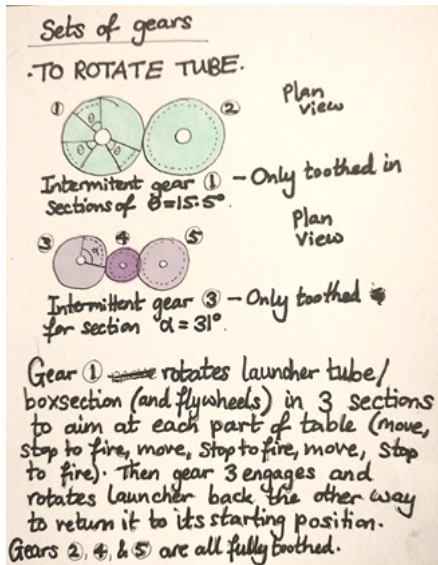 Sets of gears
·TO ROTATE TUBE.
① ② Plan
view
θ
θ θ
Intermitent gear ① – Only toothed in
sections of θ=15·5°.
Plan
View
③ ④ ⑤
α
Intermittent gear ③ – Only toothed
for section "α = 31°.
Gear ① rotates launcher tube/
boxsection (and flywheels) in 3 sections
to aim at each part of table (move,
stop to fire, move, Stop to fire, move, Stop
to fire). Then gear 3 engages and
rotates launcher back the other way
to return it to its starting position.
Gears ②, ④, & ⑤ are all fully toothed.